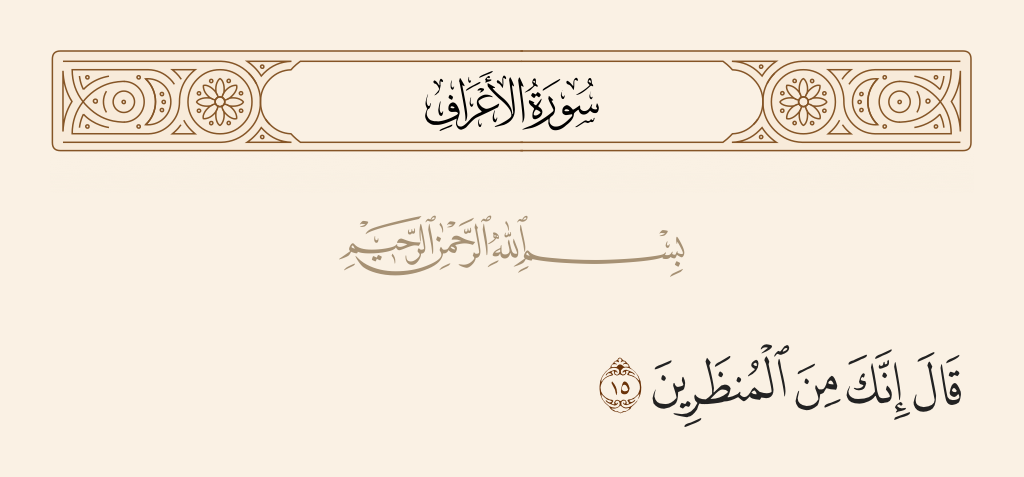 سُورَةُ الأَعۡرَافِ
بِسۡمِ ٱللَّهِ ٱلرَّحۡمَٰنِ ٱلرَّحِيمِ
قَالَ إِنَّكَ مِنَ ٱلۡمُنظَرِينَ ١٥